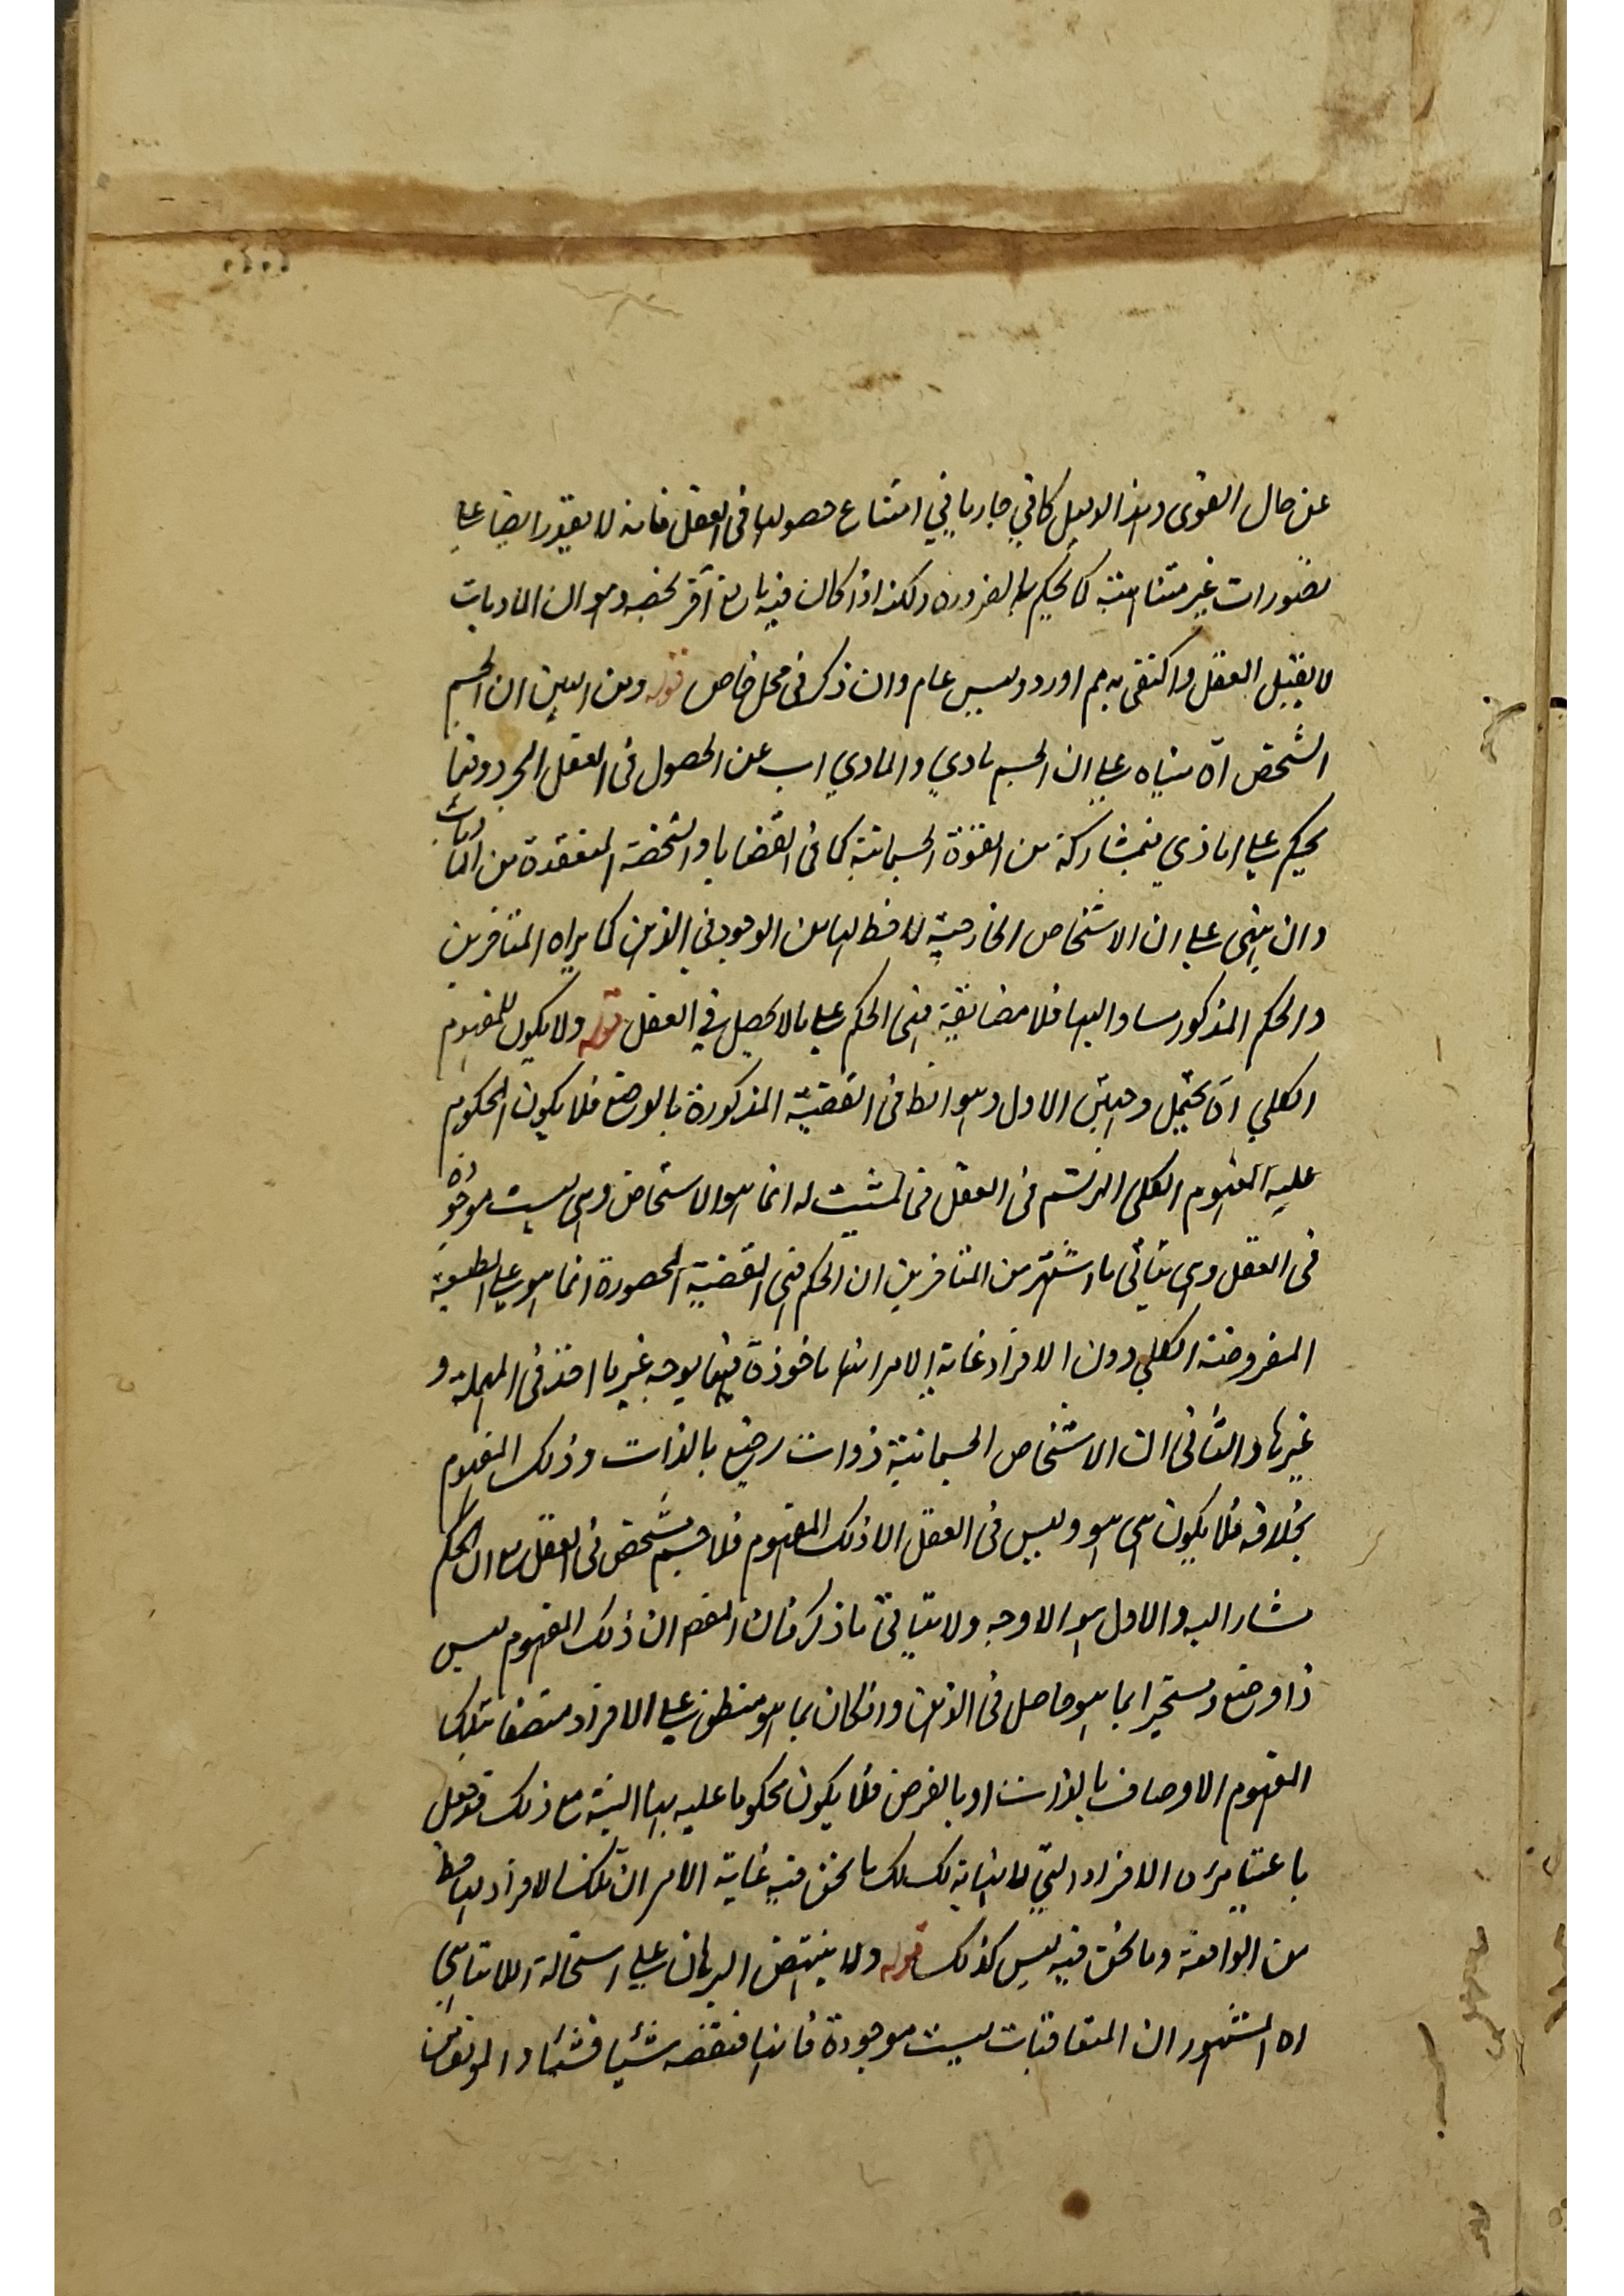 عن حال القوى وهذا الدليل كافي جار يا في امتناع حصولها في العقل فانه لا يقدر ايضا على
تصورات غير متناهية كما يحكم به الضرورة ولكنه اذا كان فيه مانع آخر يخصه وهو ان الماديات
لا يقبل العقل واكتفى به ثم اورد دليل عام وان ذكر في محل خاص قوله ومن البين ان الجسم
الشخص اه بناه على ان الجسم مادي والمادي اب عن الحصول في العقل المجرد وقيما
يحكم على المادي بمشاركة من القوة الجسمانية كما في القضايا الشخصة المنعقدة من الماديات
وان ابتنى على ان الاشخاص الخارجية لا حظ لها من الوجود في الذهن كما يراه المتاخرين
والحكم المذكور مساو اليها فلا مضايقة في الحكم على ما لا يحصل في العقل قوله ولا يكون للمفهوم
الكلي اه يحتمل وجهين الاول وهو انها في القضية المذكورة بالوضع فلا يكون المحكوم
عليه المفهوم الكلي المرتسم في العقل فما يثبت له انما هو الاشخاص وهي ليست موجودة
في العقل وهي ينافي ما اشتهر من المتاخرين ان الحكم في القضية المحصورة انما هو على الطبيعة
المفروضة الكلي دون الافراد غاية الامر انها ماخوذة فيها بوجه غير ما اخذ في المهملة و
غيرها والثاني ان الاشخاص الجسمانية ذوات وضع بالذات وذلك المفهوم
بخلافه فلا يكون هي هو وليس في العقل الا ذلك المفهوم فلا جسم مشخص في العقل مع ان الحكم
مشار اليه والاول هو الاوجه ولا ينافي ما ذكر فان المقصم ان ذلك المفهوم ليس
ذا وضع ومتحيز ا بما هو حاصل في الذهن وان كان بما هو منطبق على الافراد متصفا بتلك
المفهوم الاوصاف بالذات او بالعرض فلا يكون محكوما عليه بها البتة مع ذلك قد جعل
باعتبار الافراد التي لا نهاية لها كما نحن فيه غاية الامر ان تلك الافراد لها حظ
من الواقعة وما نحن فيه ليس كذلك قوله ولا ينتهض البرهان على استحالة اللاتناهي
اه المشهور ان المتعاقبات ليست موجودة فانها منقضة شيئا فشيئا والموقوف